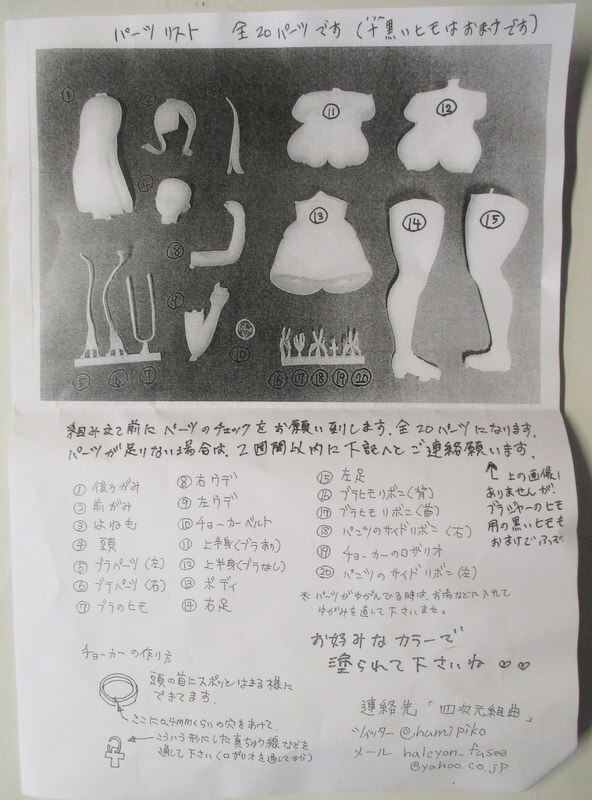 パーツリスト 全20パーツです (+黒いヒモはおまけです)
① ② ③ ⑪ ⑫
④ ⑧ ⑬ ⑭ ⑮
⑨ ⑩
⑤ ⑥ ⑦ ⑯ ⑰ ⑱ ⑲ ⑳
組み立て前にパーツのチェックをお願い致します。全20パーツになります。
パーツが足りない場合は、2週間以内に下記へとご連絡願います。
① 後ろがみ
② 前がみ
③ はねも
④ 頭
⑤ ブラパーツ (左)
⑥ ブラパーツ (右)
⑦ ブラのヒモ
⑧ 右ウデ
⑨ 左ウデ
⑩ チョーカーベルト
⑪ 上半身(ブラあり)
⑫ 上半身(ブラなし)
⑬ ボディ
⑭ 右足
⑮ 左足
⑯ ブラヒモリボン(背)
⑰ ブラヒモリボン(首)
⑱ パンツのサイドリボン (右)
⑲ チョーカーのロザリオ
⑳ パンツのサイドリボン(左)
↑上の画像に
ありませんが、
ブラジャーのヒモ
用の黒いヒモも
おまけで
※パーツがゆがんでる時は、お湯などに入れて
ゆがみを直して下さいませ。
お好みなカラーで
塗られて下さいね ♡♡
チョーカーの作り方
頭の首にスポッとはまる様に
できてます。
ここに0.4mmくらいの穴をあけて、
こういう形にした真ちゅう線などを
通して下さい(ロザリオを通してから)
連絡先「四次元組曲」
ツイッター @hamipiko
メール halcyon_fusee
@yahoo.co.jp